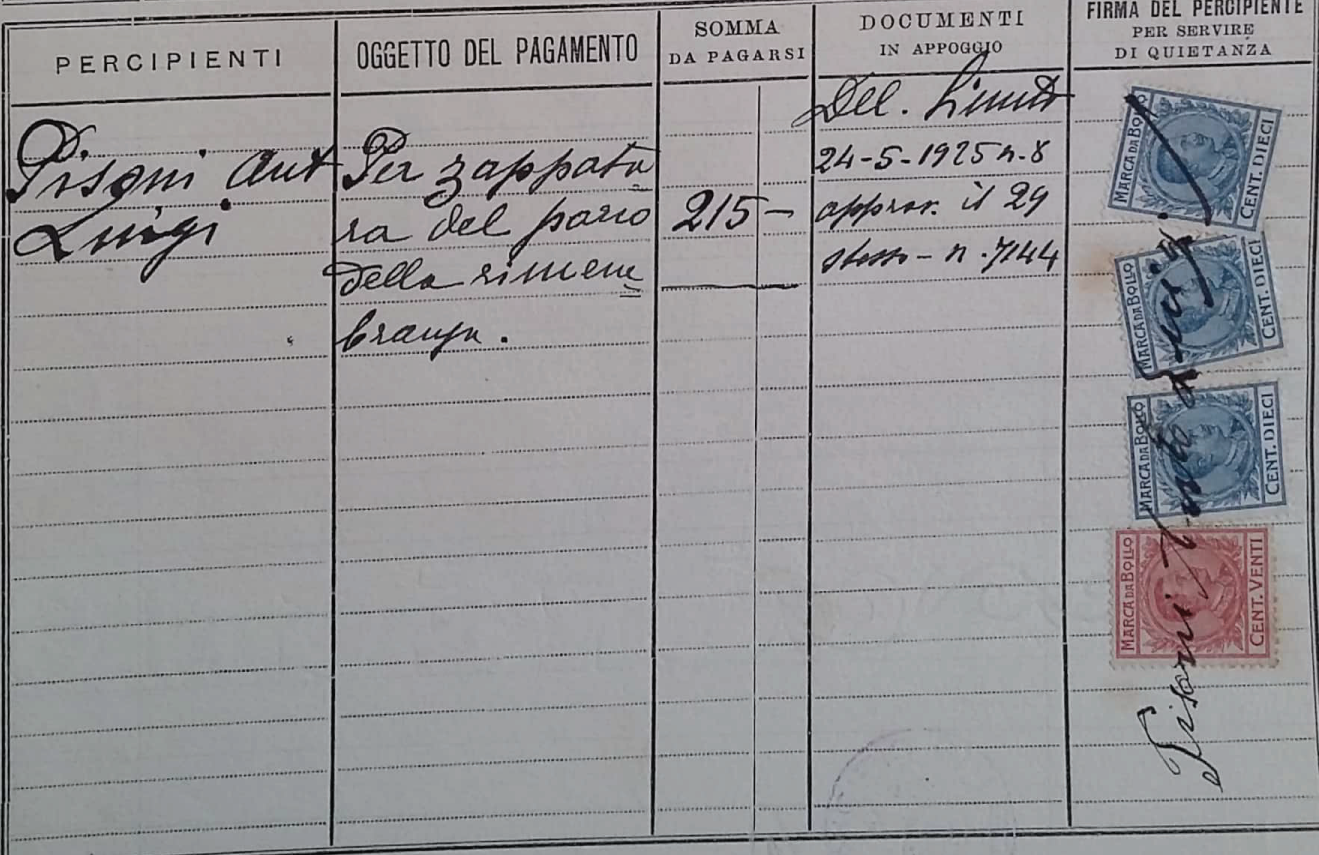 PERCIPIENTI
OGGETTO DEL PAGAMENTO
SOMMA
DA PAGARSI
DOCUMENTI
IN APPOGGIO
FIRMA DEL PERCIPIENTE
PER SERVIRE
DI QUIETANZA
Pisoni Ant
Luigi
Per zappatu
ra del parco
della rimem
branza.
215 -
Del.
24-5-1925 n. 8
approv. il 29
stesso - n. 7144
MARCA DA BOLLO
CENT. DIECI
MARCA DA BOLLO
CENT. DIECI
MARCA DA BOLLO
CENT. DIECI
MARCA DA BOLLO
CENT. VENTI
Pisoni Luigi